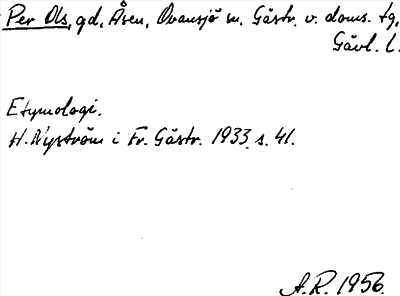 Per Ols, gd, Åsen, Ovansjö sn, Gästr. v. doms. tg,
Gävl. l.
Etymologi.
H. Nyström i Fr. Gästr. 1933 s. 41.
A.R. 1956.